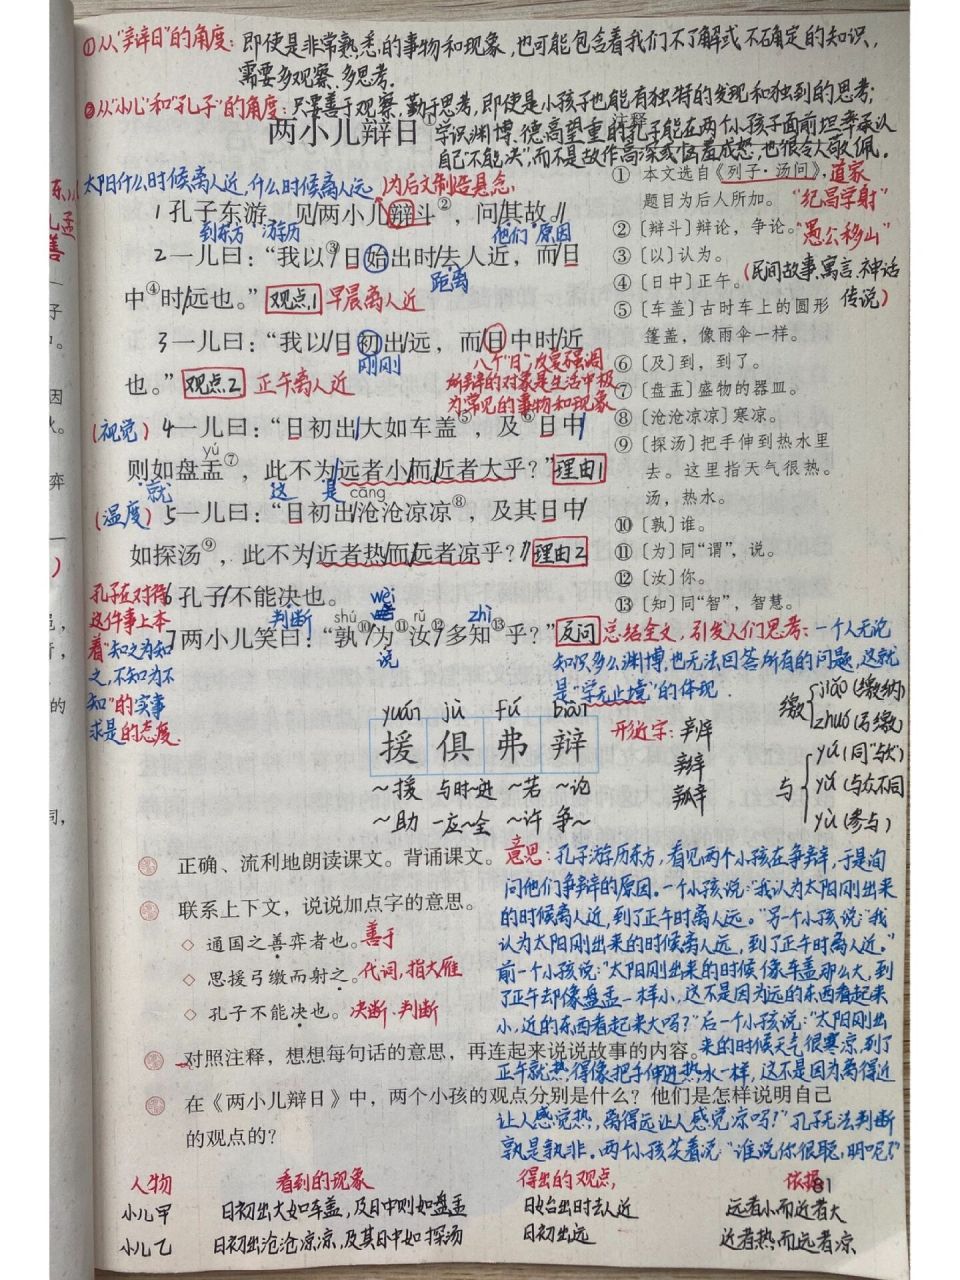 ①从"辩日"的角度：即使是非常熟悉的事物和现象，也可能包含着我们不了解或不确定的知识，
需要多观察、多思考.
②从"小儿"和"孔子"的角度：只要善于观察，勤于思考，即使是小孩子也能有独特的发现和独到的思考；
两小儿辩日①
学识渊博、德高望重的孔子能在两个小孩子面前坦率承认
自己"不能决"，而不是故作高深或恼羞成怒，也很令人敬佩。
注释
太阳什么时候离人近，什么时候离人远
为后文制造悬念.
1孔子东游，见/两小儿辩斗②，问/其故。//
到东方 游历
他们 原因
2一儿曰："我以③/日始出时/去人近，而/日
距离
中④时/远也。"
观点1
早晨离人近
3一儿曰："我以/日初出/远，而/日中时/近
刚刚
也。"
观点2
正午离人近
八个"日"，反复强调
所辩的对象是生活中极
为常见的事物和现象
(视觉)
4一儿曰："日初出/大如车盖⑤，及⑥日中/
yú
则如盘盂⑦，此不为/远者小/而/近者大乎？"
理由1
就 这 是
cāng
(温度)
5一儿曰："日初出/沧沧凉凉⑧，及其日中/
如探汤⑨，此不为/近者热/而/远者凉乎？"//
理由2
6孔子/不能决也。
判断
shú wèi rǔ zhì
7两小儿笑曰："孰⑩/为⑪汝⑫/多知⑬乎？"
说
反问
总结全文，引发人们思考：一个人无论
知识多么渊博，也无法回答所有的问题，这就
是"学无止境"的体现.
孔子在对待
这件事上本
着"知之为知
之，不知为不
知"的实事
求是的态度.
① 本文选自《列子·汤问》，
道家
题目为后人所加。
"纪昌学射"
② 〔辩斗〕辩论，争论。
"愚公移山"
③ 〔以〕认为。
④ 〔日中〕正午。
(民间故事、寓言、神话
传说)
⑤ 〔车盖〕古时车上的圆形
篷盖，像雨伞一样。
⑥ 〔及〕到，到了。
⑦ 〔盘盂〕盛物的器皿。
⑧ 〔沧沧凉凉〕寒凉。
⑨ 〔探汤〕把手伸到热水里
去。这里指天气很热。
汤，热水。
⑩ 〔孰〕谁。
⑪ 〔为〕同"谓"，说。
⑫ 〔汝〕你。
⑬ 〔知〕同"智"，智慧。
yuán jù fú biàn
援 俱 弗 辩
~援 与时~进 ~若 ~论
~助 一应~全 ~许 争~
形近字：辨
辫
瓣
缴 jiǎo (缴纳)
zhuó (弓缴)
与 yú (同"欤")
yǔ (与众不同)
yù (参与)
正确、流利地朗读课文。背诵课文。
联系上下文，说说加点字的意思。
◇ 通国之善弈者也。
善于
◇ 思援弓缴而射之。
代词，指大雁
◇ 孔子不能决也。
决断、判断
对照注释，想想每句话的意思，再连起来说说故事的内容。
在《两小儿辩日》中，两个小孩的观点分别是什么？他们是怎样说明自己
的观点的？
意思：孔子游历东方，看见两个小孩在争辩，于是询
问他们争辩的原因。一个小孩说："我认为太阳刚出来
的时候离人近，到了正午时离人远。"另一个小孩说："我
认为太阳刚出来的时候离人远，到了正午时离人近。"
前一个小孩说："太阳刚出来的时候像车盖那么大，到
了正午却像盘盂一样小，这不是因为远的东西看起来
小，近的东西看起来大吗？"后一个小孩说："太阳刚出
来的时候天气很寒凉，到了
正午就热得像把手伸进热水一样，这不是因为离得近
让人感觉热，离得远让人感觉凉吗？"孔子无法判断
孰是孰非。两个小孩笑着说："谁说你很聪明呢？"
81
人物 看到的现象 得出的观点， 依据
小儿甲 日初出大如车盖，及日中则如盘盂 日始出时去人近 远者小而近者大
小儿乙 日初出沧沧凉凉，及其日中如探汤 日初出远 近者热而远者凉